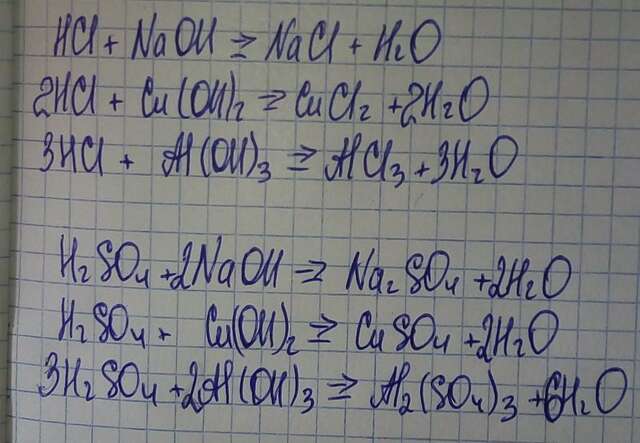 HCl + NaOH ⇒ NaCl + H₂O
2HCl + Cu(OH)₂ ⇒ CuCl₂ + 2H₂O
3HCl + Al(OH)₃ ⇒ AlCl₃ + 3H₂O
H₂SO₄ + 2NaOH ⇒ Na₂SO₄ + 2H₂O
H₂SO₄ + Cu(OH)₂ ⇒ CuSO₄ + 2H₂O
3H₂SO₄ + 2Al(OH)₃ ⇒ Al₂(SO₄)₃ + 6H₂O